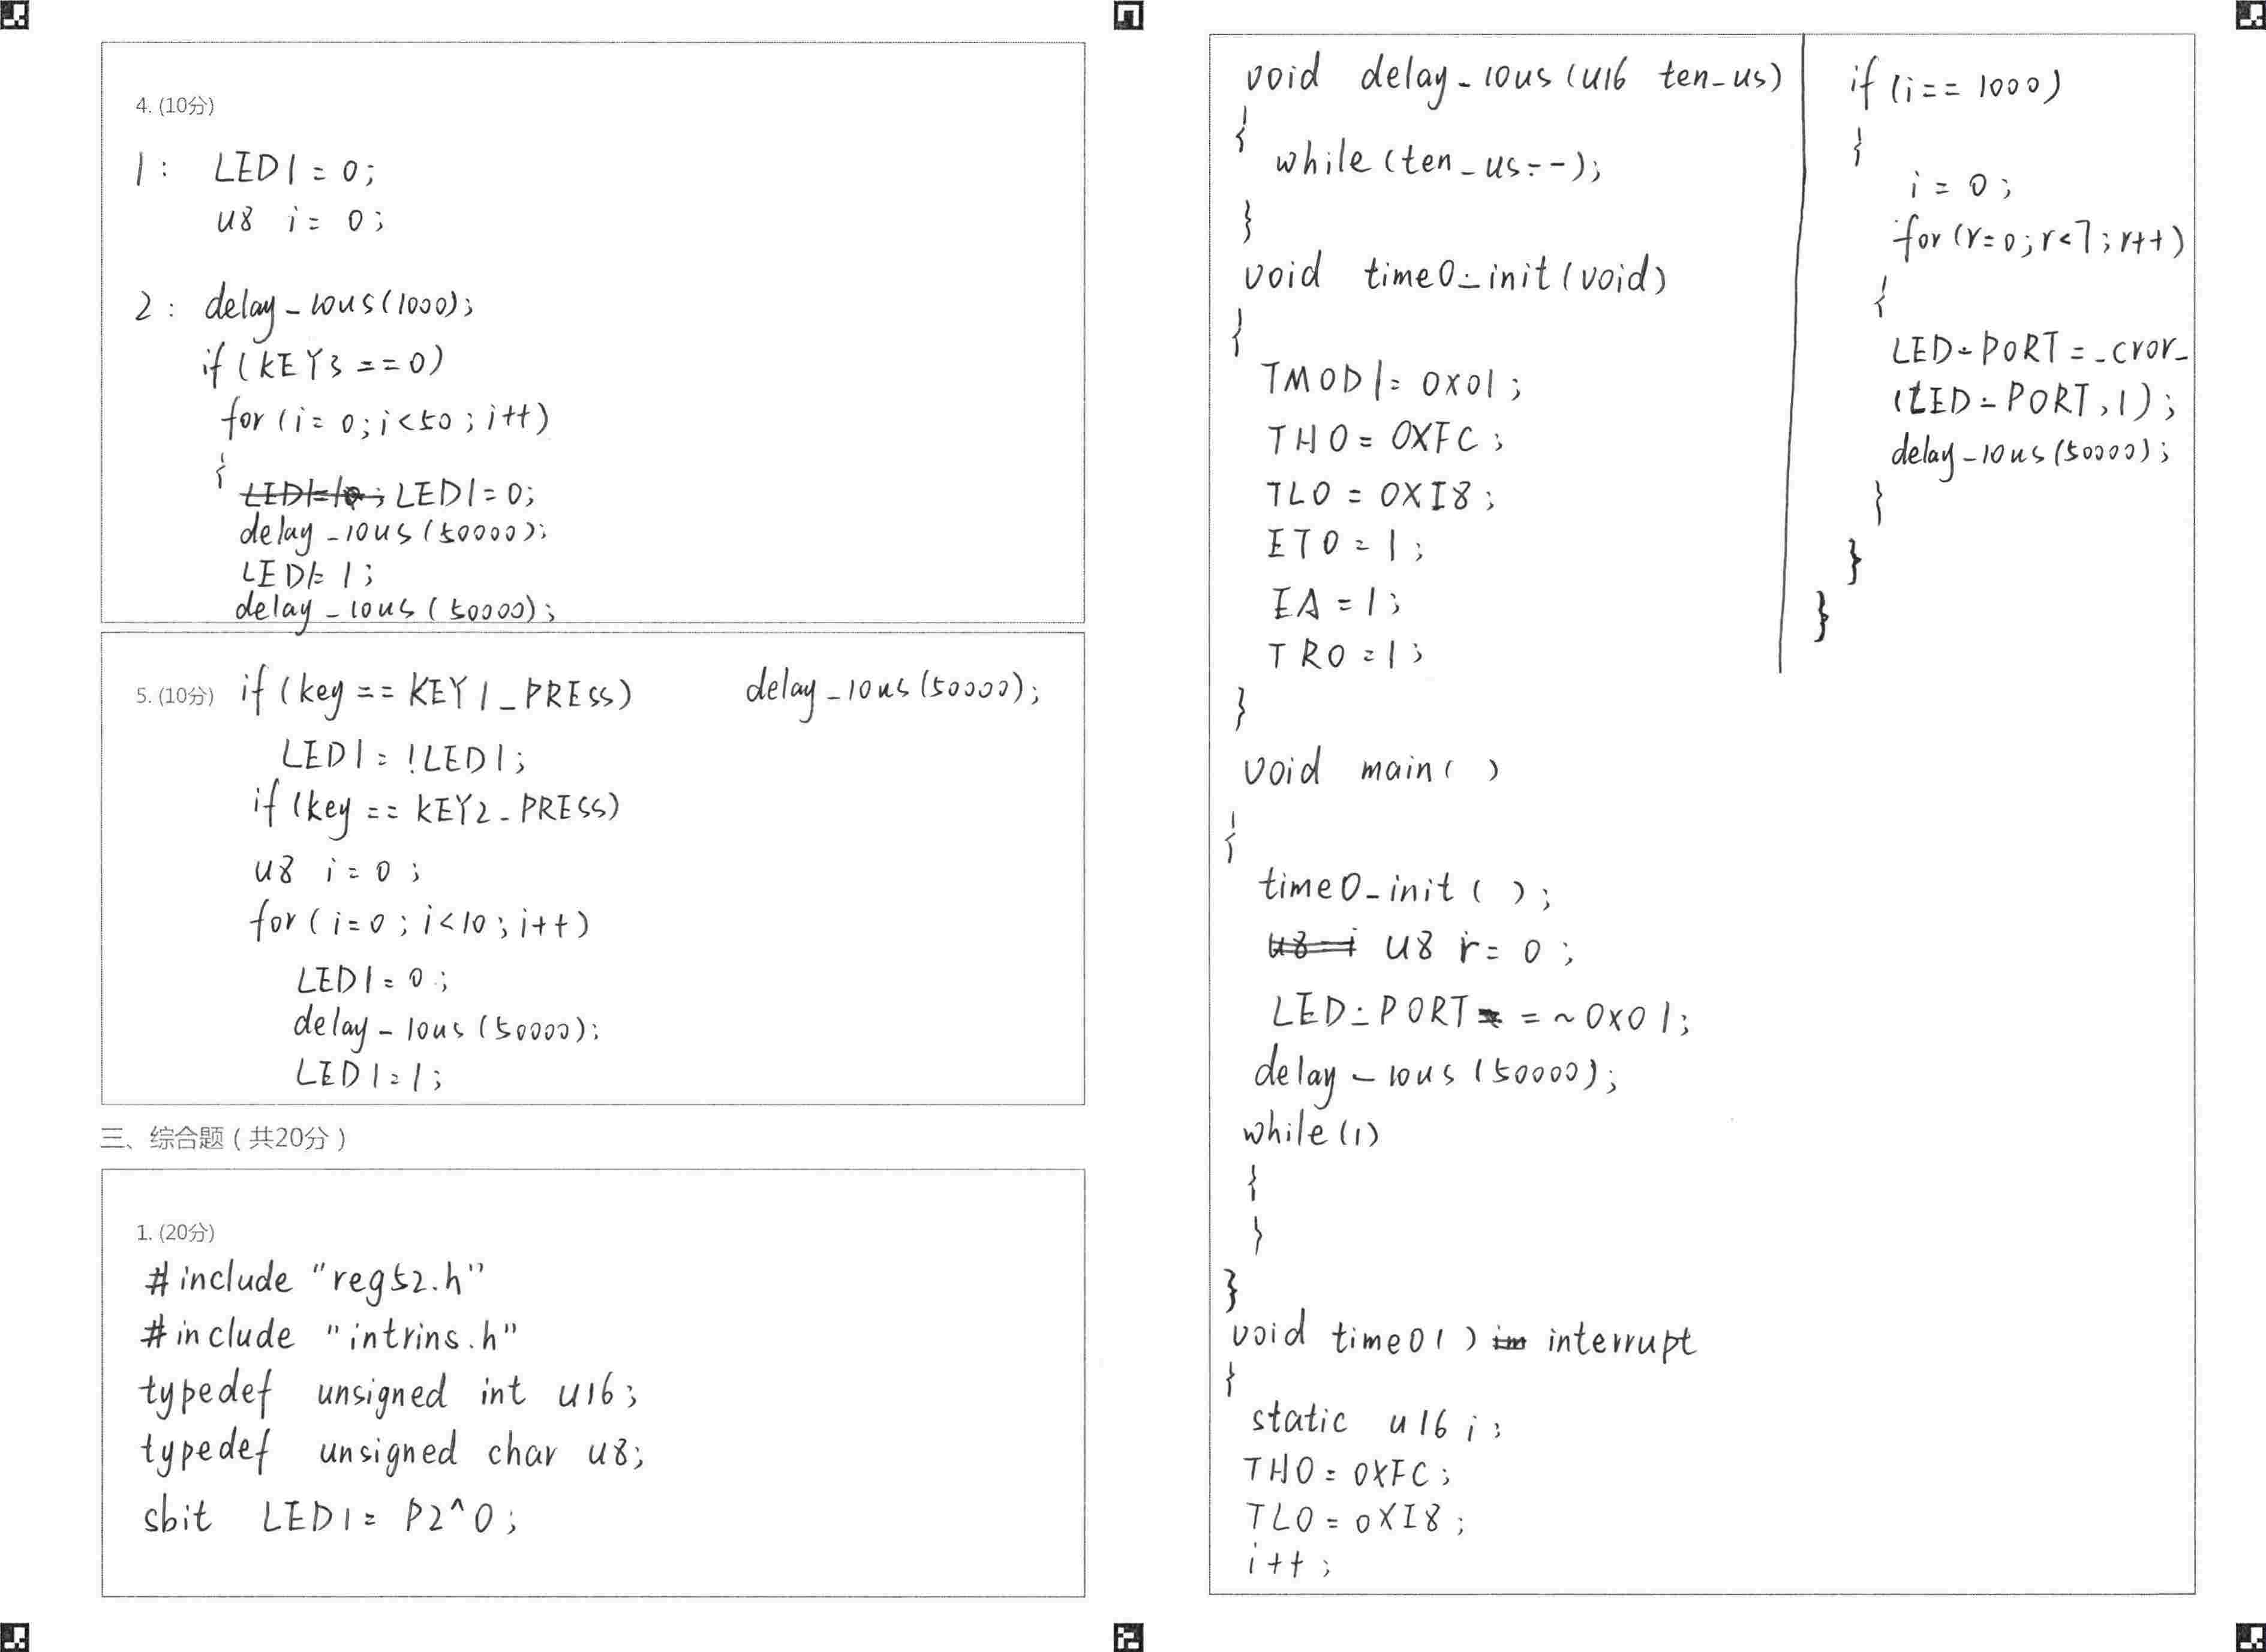 4. (10分)
1: LED1 = 0;
u8 i = 0;
2: delay_10us(1000);
if (KEY3 == 0)
for (i = 0; i<50; i++)
{
LED1=0;
delay_10us(50000);
LED1= 1;
delay_10us(50000);
5. (10分) if (key == KEY1_PRESS)
LED1 = !LED1;
if (key == KEY2_PRESS)
u8 i = 0;
for (i=0; i<10; i++)
LED1=0;
delay_10us(50000);
LED1=1;
delay_10us(50000);
三、综合题（共20分）
1. (20分)
#include "reg52.h"
#include "intrins.h"
typedef unsigned int u16;
typedef unsigned char u8;
sbit LED1= P2^0;
void delay_10us(u16 ten_us)
{
while(ten_us--);
}
void time0_init(void)
{
TMOD|= 0X01;
TH0= 0XFC;
TL0 = 0XI8;
ET0=1;
EA=1;
TR0=1;
}
void main( )
{
time0_init( );
u8 r= 0;
LED_PORT = ~0X01;
delay_10us(50000);
while(1)
{
}
}
void time0( ) interrupt
{
static u16 i;
TH0=0XFC;
TL0=0XI8;
i++;
if (i== 1000)
{
i = 0;
for (r=0; r<7; r++)
{
LED_PORT=_cror_
(LED_PORT,1);
delay_10us(50000);
}
}
}